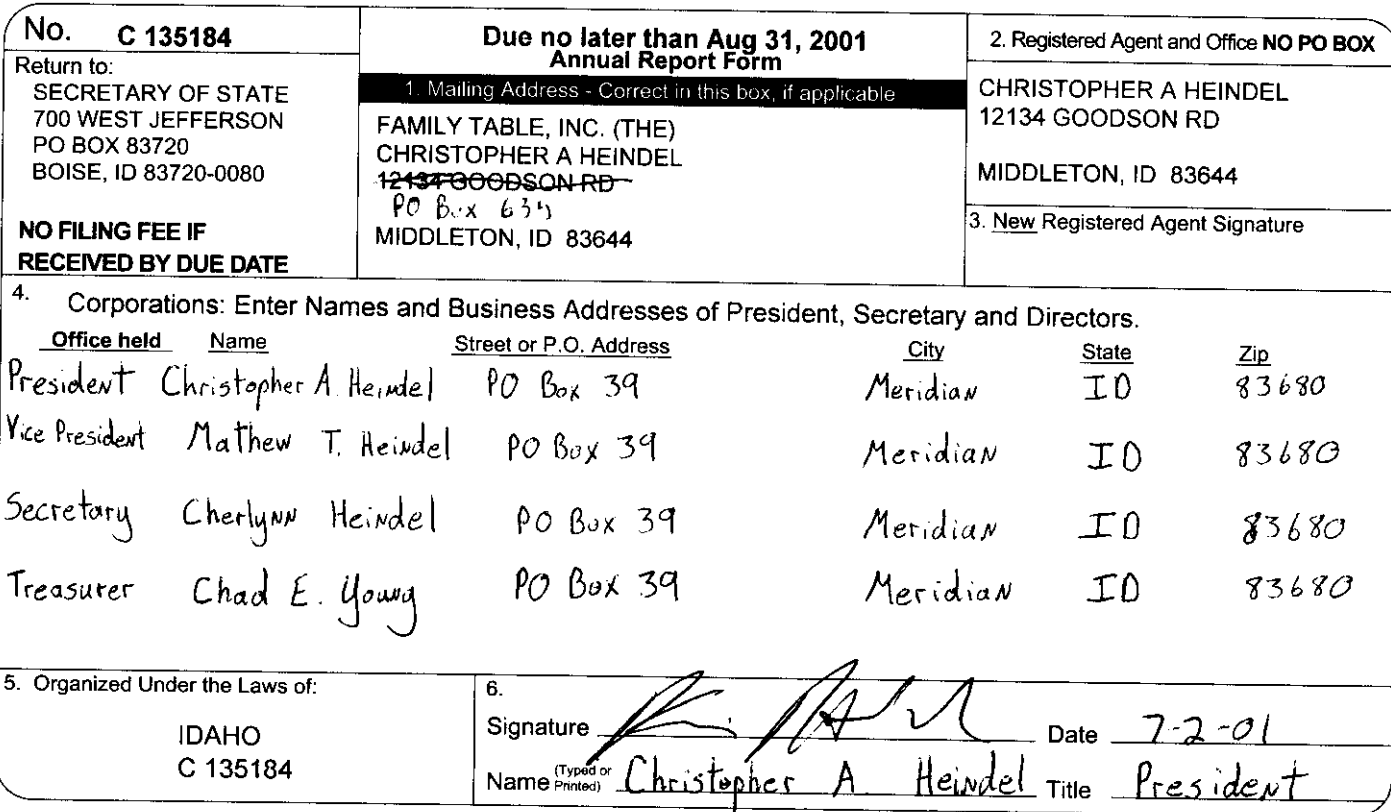 No. C 135184
Return to:
SECRETARY OF STATE
700 WEST JEFFERSON
PO BOX 83720
BOISE, ID 83720-0080
NO FILING FEE IF
RECEIVED BY DUE DATE
Due no later than Aug 31, 2001
Annual Report Form
1. Mailing Address - Correct in this box, if applicable
FAMILY TABLE, INC. (THE)
CHRISTOPHER A HEINDEL
12134 GOODSON RD
PO Box
MIDDLETON, ID 83644
2. Registered Agent and Office NO PO BOX
CHRISTOPHER A HEINDEL
12134 GOODSON RD
MIDDLETON, ID 83644
3. New Registered Agent Signature
4. Corporations: Enter Names and Business Addresses of President, Secretary and Directors.
Office held Name Street or P.O. Address City State Zip
President Christopher A. Heindel PO Box 39 Meridian ID 83680
Vice President Mathew T. Heindel PO Box 39 Meridian ID 83680
Secretary Cherlynn Heindel PO Box 39 Meridian ID 83680
Treasurer Chad E. Young PO Box 39 Meridian ID 83680
5. Organized Under the Laws of:
IDAHO
C 135184
6.
Signature Date 7-2-01
Name (Typed or Printed) Christopher A. Heindel Title President